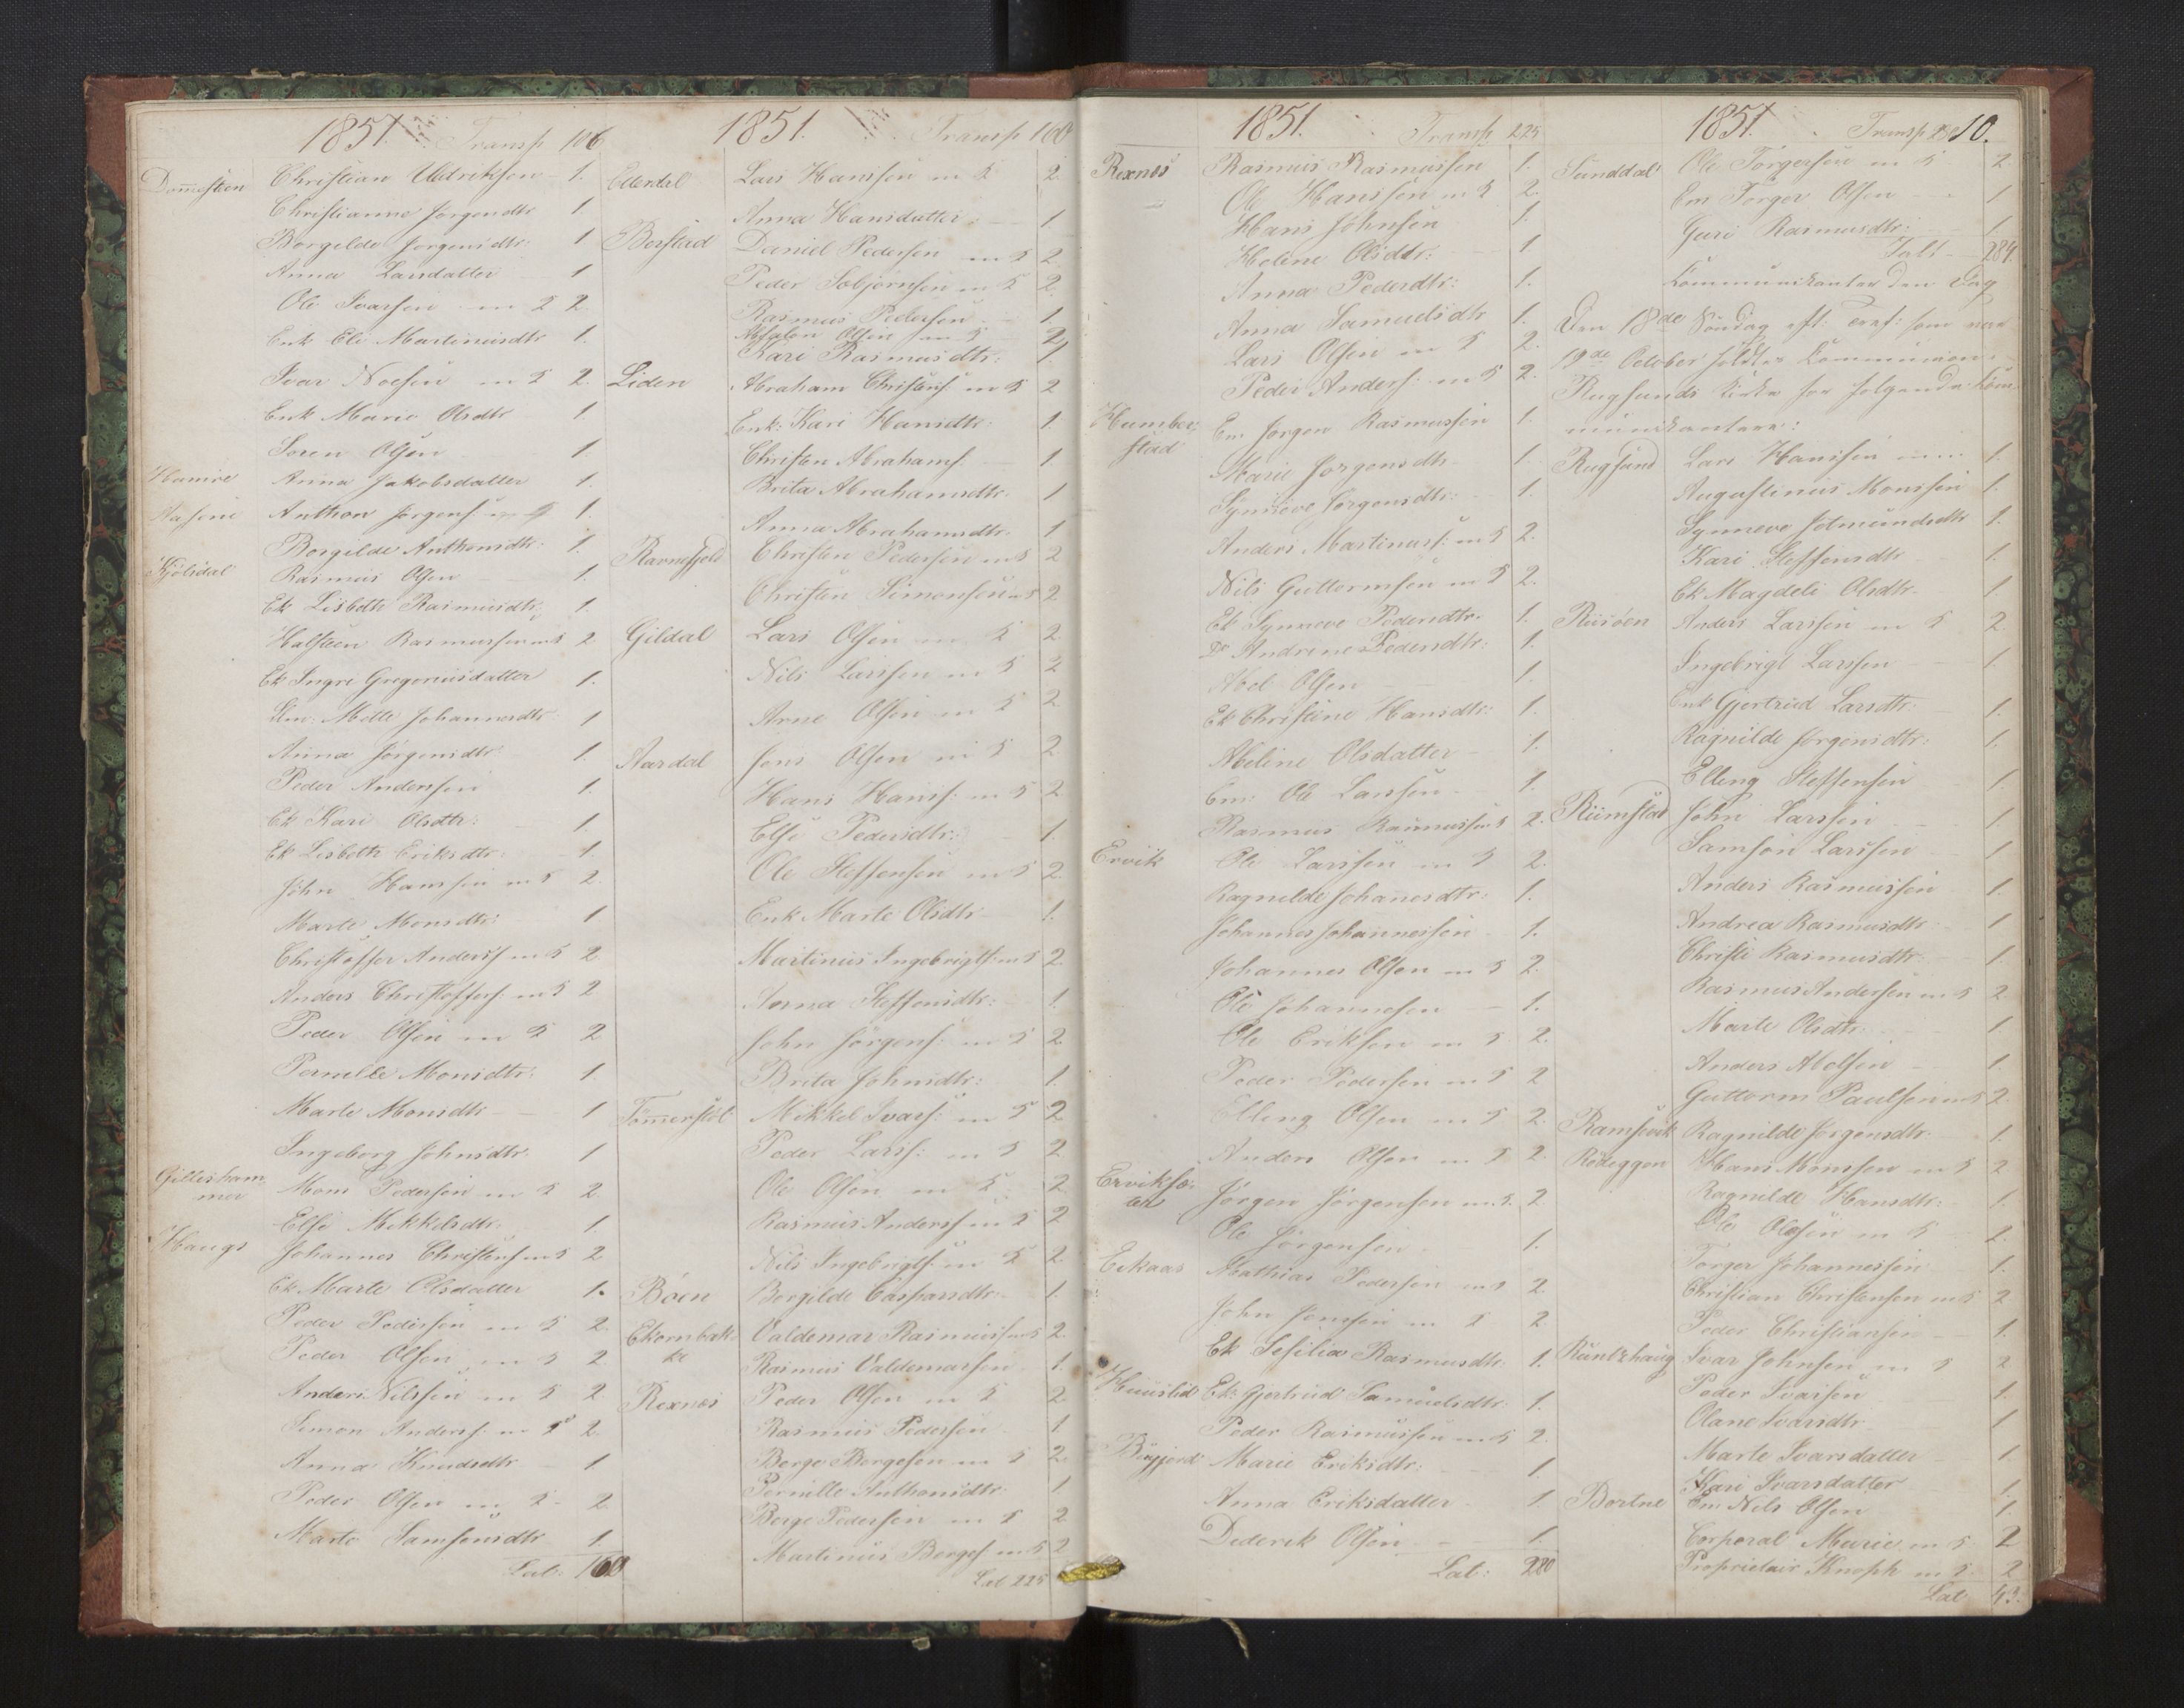 1851. Transp 106
Domesteen Christian Uldriksen 1.
Christianne Jørgensdtr 1
Borgilde Jorgensdtr: 1
Anna Larsdatter 1
Ole Ivarsen m 2.
Enk Eli Martinusdtr 1.
Ivar 2.
Enk Marie Olsdtr 1.
Soren Olsen 1.
Anna Jakobsdatter 1.
Anthon Jørgens: 1.
Borgilde Anthonsdtr 1.
Kjölsdal Rasmus Olsen 1.
Ek Lisbeth Rasmusdtr 1.
Halsteen Rasmussen m 2
Ek Ingre Gregoriusdatter 1.
Mette Johannesdtr 1
Anna Jørgensdtr 1.
Peder Andersen 1.
Ek Kari Olsdtr: 1
Ek Lisbeth Eriksdtr: 1.
John Hanssen m 2.
Marte Monsdtr: 1
Christoffer Anderss m 2
Anders Christoffers: m 2
Peder Olsen m 2
Pernille Monsdtr: 1.
Marte Monsdtr 1
Ingeborg Johnsdtr: 1
Gilleshammer Mons Pedersen m 2.
Else Mikkelsdtr: 1.
Haugs Johannes Christens m 2
Ek Marte Olsdatter 1.
Peder Pedersen m 2.
Peder Olsen m 2
Anders Nilssen m 2
Simon Anders: m 2.
Anna Knudsdtr 1
Peder Olsen m 2
Marte Samsonsdtr 1
Lat: 160
1851. Transp 160
Lars Hanssen m 2.
Anna Hansdatter: 1
Berstad Daniel Pedersen m 2
Peder m 2.
Rasmus Pedersen 1.
Absalon Olsen m 2
Kari Rasmusdtr: 1
Liden Abraham Christens: m 2
Enk: Kari Hansdtr: 1.
Christen Abrahams: 1
Brita Abrahamsdtr: 1
Anna Abrahamsdtr: 1
Ravnefjeld Christen Pedersen m 2
Christen Simonsen m 2
Gildal Lars Olsen m 2.
Nils Larssen m 2
Arne Olsen m 2
Aardal Jens Olsen m 2
Hans Hanss: m 2
Else Pedersdtr: 1
Ole Steffensen m 2
Enk Marte Olsdtr 1.
Martinus Ingebrigts: m 2
Anna Steffensdtr: 1.
John Jörgens: m 2
Brita Johnsdtr: 1.
Mikkel Ivars: m 2
Peder Larss: m 2
Ole Olsen m 2
Rasmus Anderss m 2
Nils Ingebrigts: m 2.
Böen Borgilde Caspersdtr 1.
Ekornbakke Valdemar Rasmussen m 2.
Rasmus Valdemarsen 1.
Rexnes Peder Olsen m 2
Rasmus Pedersen 1
Berge Bergesen m 2
Pernille Anthonsdtr: 1
Berge Pedersen m 2
Martinus Berges m 2
Lat 225
1851. Transp 225
Rexnes Rasmus Rasmussen 1.
Ole Hanssen m 2.
Hans Johnsen 1.
Holine Olsdtr: 1
Anna Pedersdtr: 1.
Anna Samuelsdtr 1.
Lars Olsen m 2.
Peder Anders: m 2.
Humberstad Em Jørgen Rasmussen 1.
Marie Jorgensdtr 1.
Synneve Jorgensdtr: 1.
Anders Martinus: m 2.
Nils Guttormsen m 2.
Ek Synneve Pedersdtr. 1.
Do Andrine Pedersdtr: 1.
Abel Olsen 1.
Ek Christine Hansdtr: 1.
Abeline Olsdatter 1.
Em: Ole Larssen 1.
Rasmus Rasmussen 2.
Ervik Ole Larssen m 2.
Ragnilde Johanesdtr: 1.
Johannes Johannessen 1.
Johannes Olsen m 2.
Ole Johannesen 1.
Ole Eriksen m 2.
Peder Pedersen m 2
Elling Olsen m 2.
Anders Olsen m 2.
Jørgen Jørgensen m. 2.
Ole Jørgensen 1.
Eikaas Mathias Pedersen m 2.
John Jonssen m 2
Ek Sesilia Rasmusdtr: 1.
Huuslid Ek: Gjertrud Samuelsdtr 1.
Peder Rasmussen m 2.
Marie Eriksdtr: 1.
Anna Eriksdatter 1.
Dederik Olsen 1.
Lat: 280
1851. Transp 280 10.
Sanddal Ole Torgersen m 2
Em Torger Olsen 1
Guri Rasmusdtr: 1
Ialt 284.
Kommunikanter den Dag
Den 18de Söndag eft: Tref: som var
19de October holdtes Communion i
Rugsunds Kirke for folgende Kom-
munikantere:
Rugsund Lars Hanssen 1.
Augustinus Monssen 1.
Synneve Jetmundsdtr 1.
Kari Steffensdtr 1.
Ek Magdeli Olsdtr 1
Riisöen Anders Larssen m 2.
Ingebrigt Larssen 1.
Enk Gjertrud Larsdtr: 1.
Ragnilde Jørgensdtr: 1.
Elling Steffensen 1
Rümstad John Larssen 1.
Samson Larssen 1
Anders Rasmussen 1.
Andrea Rasmusdtr 1
Christi Rasmusdtr: 1.
Rasmus Andersen m 2
Marte Olsdtr: 1
Anders Abelsen 1
Guttorm Paulsen m 2.
Ramsvik Ragnilde Jörgensdtr: 1.
Rödeggen Hans Monssen m 2
Ragnilde Hansdtr: 1.
Ole Olssen m 2.
Torger Johannessen 1.
Christian Christensen m 2
Peder Christiansen 1.
Rüntzhaug Ivar Johnsen m 2
Peder Ivarsen 1.
Olane Ivarsdtr 1
Marte Ivarsdatter 1.
Kari Ivarsdatter 1.
Bortne Em Nils Olsen 1.
Corporal Murie m 2
Proprietair Knoph m 2
Lat 43.